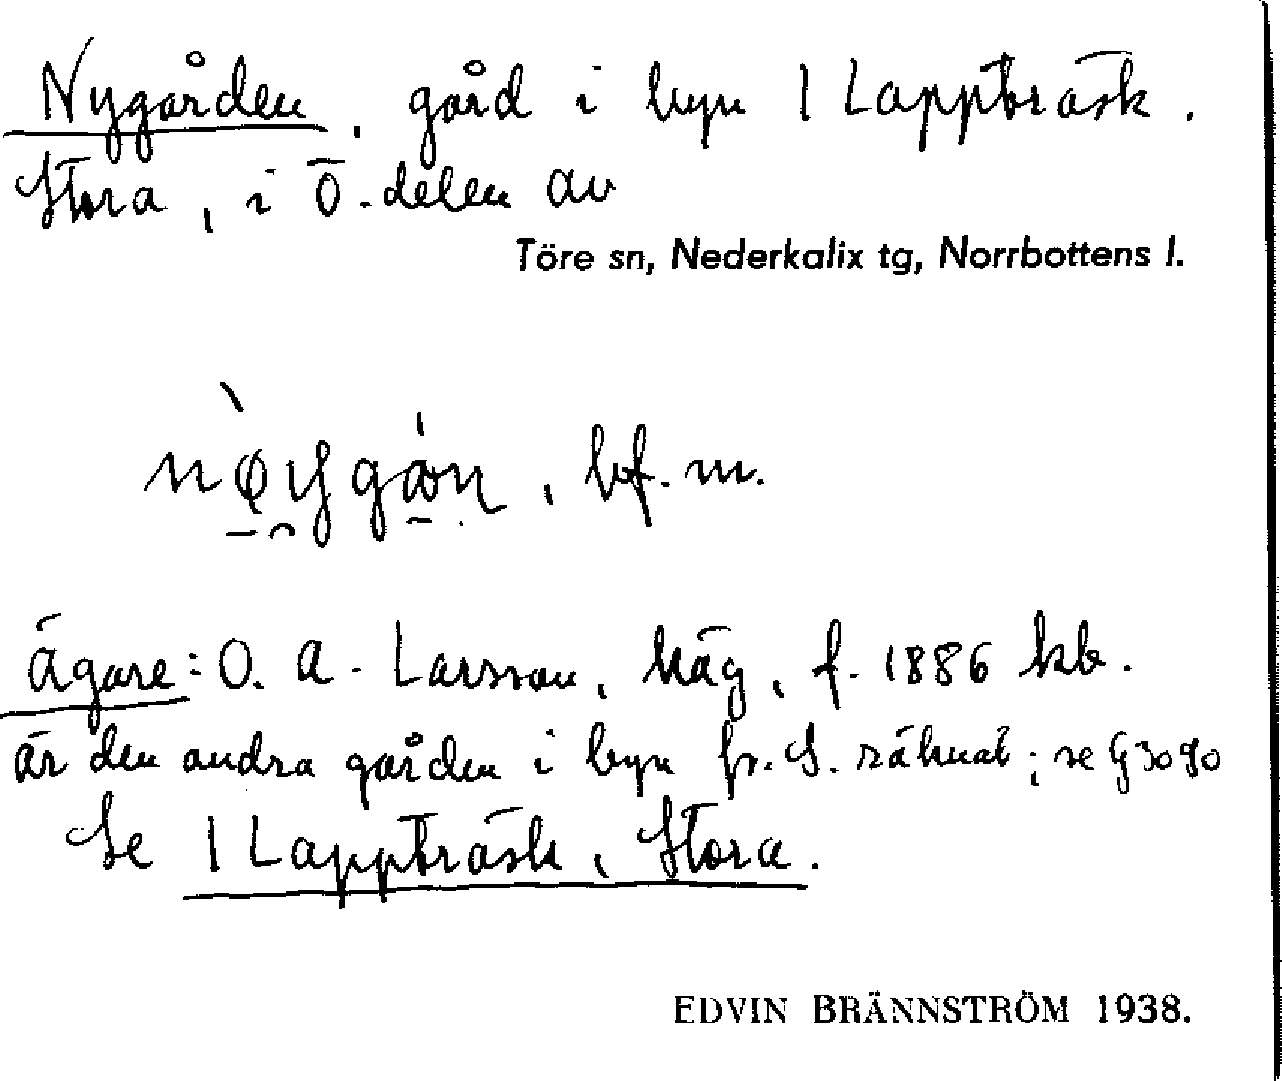 Nygården, gård i byn 1 Lappträsk.
Stora, i Ö. delen av
Töre sn, Nederkalix tg, Norrbottens l.
, bf. m.
Ägare: O. A. Larsson, häg, f. 1886 hb.
är den andra gården i byn fr. S. räknat; se G 3090
Se 1 Lappträsk, Stora.
EDVIN BRÄNNSTRÖM 1938.